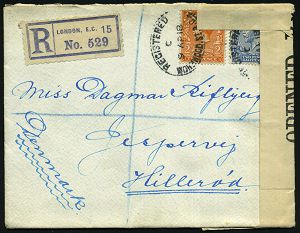 R
LONDON, E.C. 15
No. 529
REGISTERED
OPENED
Miss Dagmar Kiflbjerg
Jespervej
Hillerød
Denmark